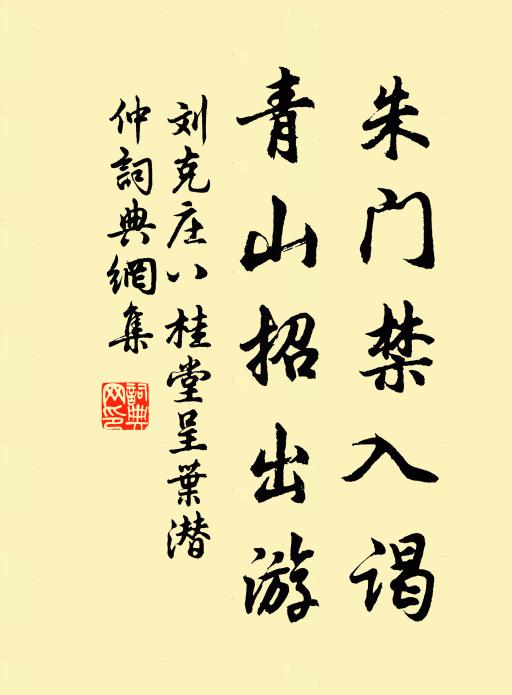 朱门禁入谒
青山招出游
刘克庄八桂堂呈葉潜
仲詞典網集
詞典
网印